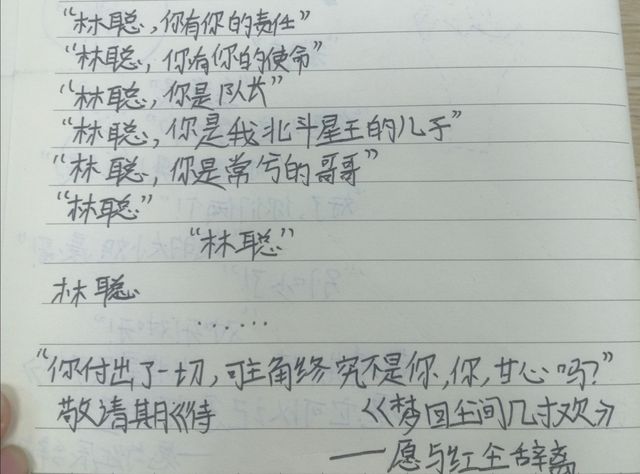 “林聪，你有你的责任”
“林聪，你有你的使命”
“林聪，你是队长”
“林聪，你是我北斗星王的儿子”
“林聪，你是常亏的哥哥”
“林聪”
“林聪”
林聪
……
“你付出了一切，可主角终究不是你，你，甘心吗？”
敬请期《待 《梦回尘间几寸欢》
——愿与红尘辞离